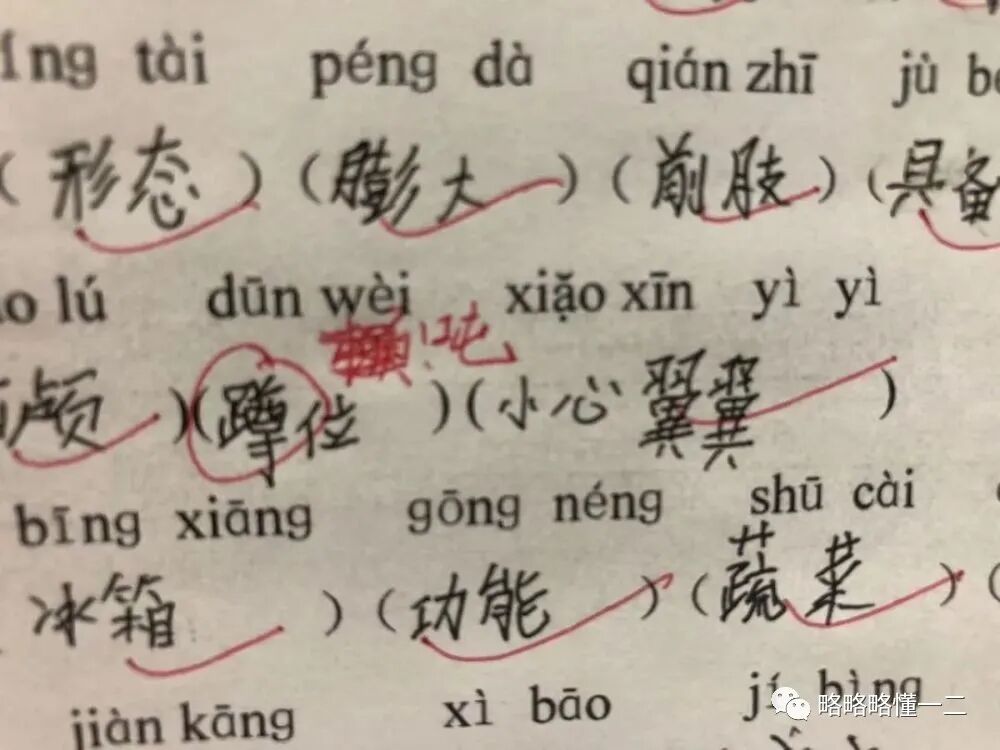 íng tài péng dà qián zhī jù b
(形态)(膨大)(前肢)(具备
o lú dūn wèi xiǎo xīn yì yì
吨
颅)(蹲位)(小心翼翼)
bīng xiāng gōng néng shū cài
冰箱)(功能)(蔬菜)(
jiàn kāng xì bāo jí bìng
略略略懂一二